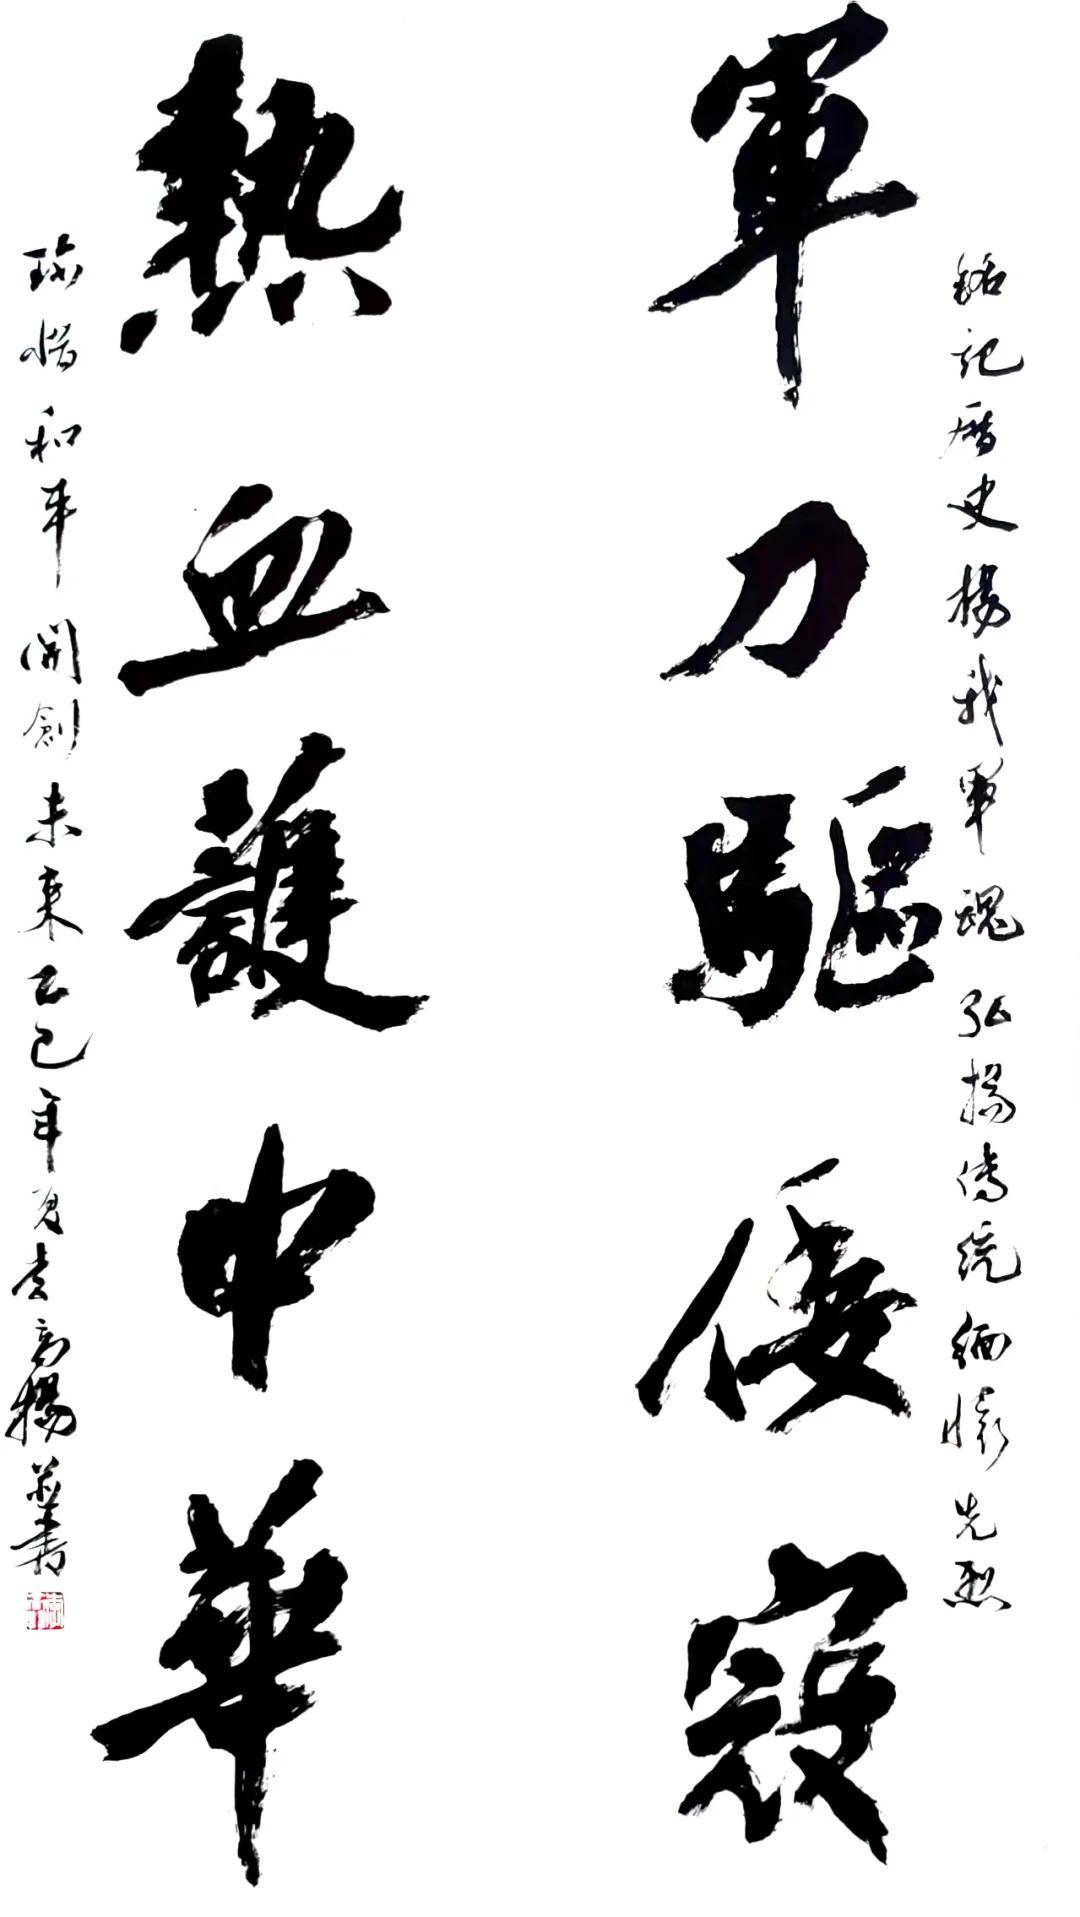 銘記歷史揚我軍魂弘揚傳統緬懷先烈
軍刀驅倭寇
熱血護中華
珍惜和平開創未來乙巳年夏高楊並書